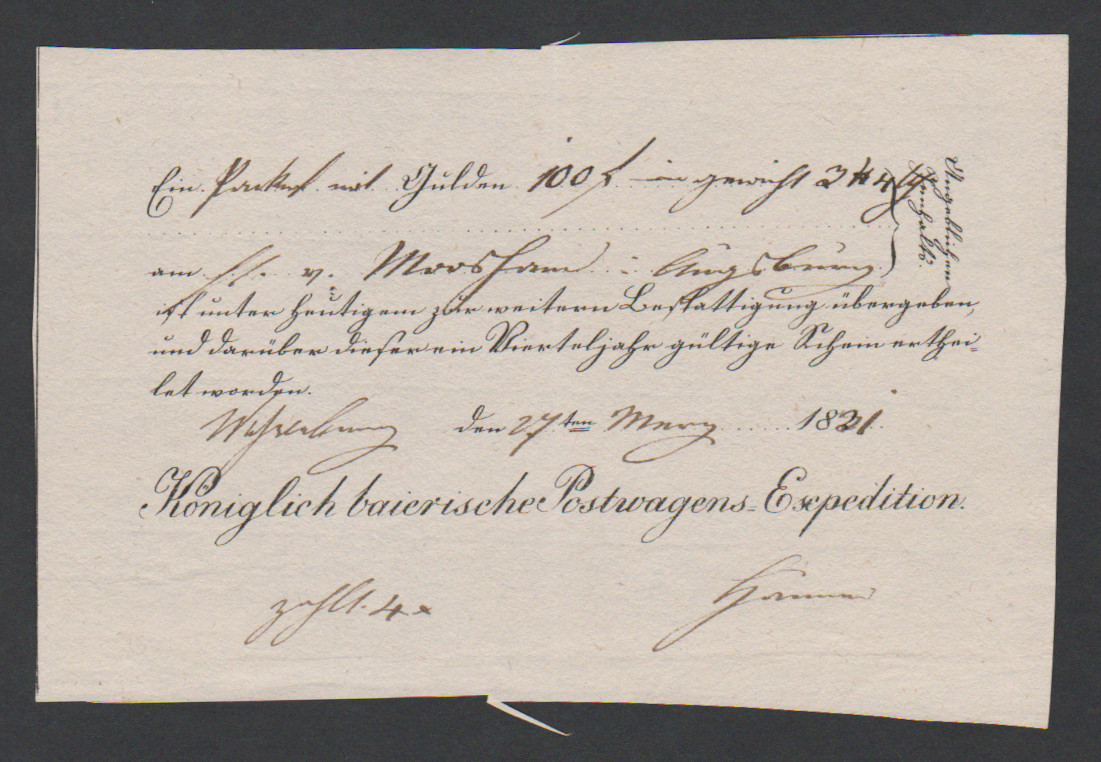 Ein Packet mit Gulden 100 f in gewicht 2 ℔ 4
Angeblichen
Innhalts.
am v. Moosham Augsburg
ist unter heutigem zur weitern Bestättigung übergeben,
und darüber dieser ein Vierteljahr gültige Schein erthei=
let worden.
den 27ten Merz 1821
Königlich baierische Postwagens=Expedition.
zahlt. 4 x